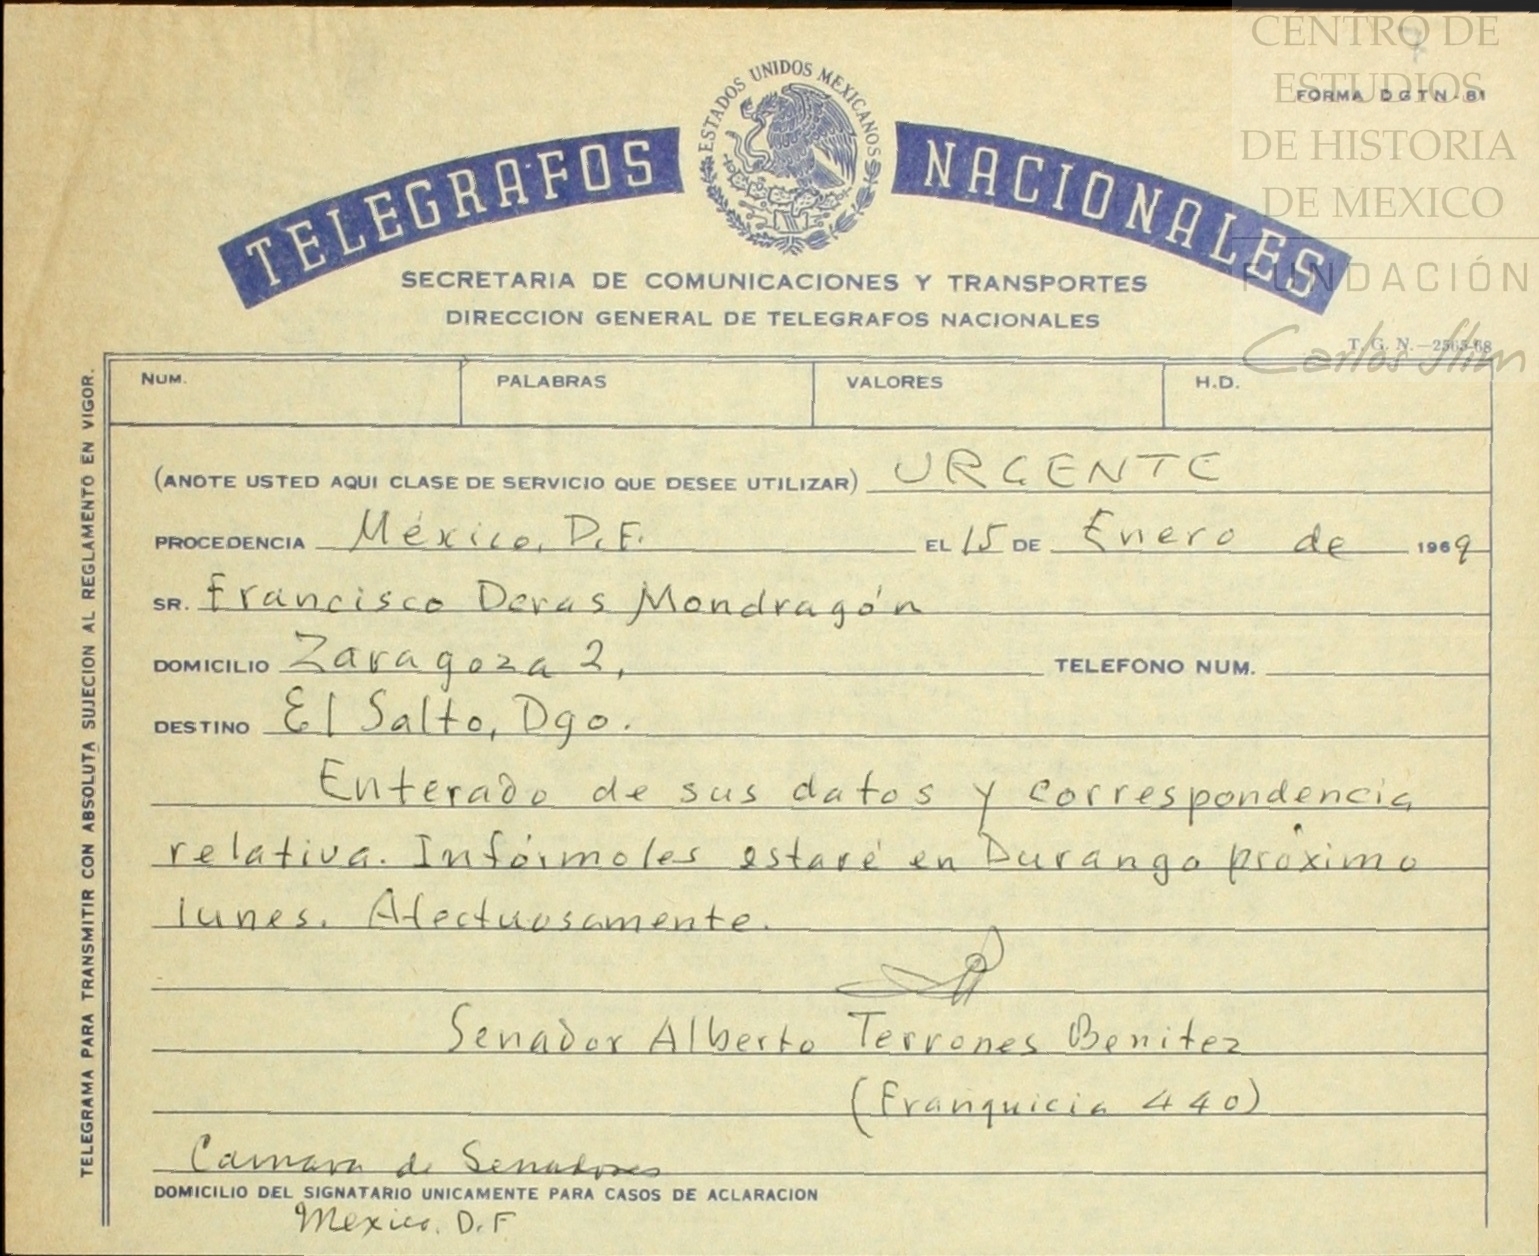 CENTRO DE
ESTUDIOS
DE HISTORIA
DE MEXICO
FUNDACIÓN
Carlos Slim
FORMA DGTN-81
ESTADOS UNIDOS MEXICANOS
TELEGRAFOS NACIONALES
SECRETARIA DE COMUNICACIONES Y TRANSPORTES
DIRECCION GENERAL DE TELEGRAFOS NACIONALES
T. G. N.—2565-68
NUM. PALABRAS VALORES H.D.
(ANOTE USTED AQUI CLASE DE SERVICIO QUE DESEE UTILIZAR) URGENTE
PROCEDENCIA México, D.F. EL 15 DE Enero de 1969
SR. Francisco Deras Mondragón
DOMICILIO Zaragoza 2, TELEFONO NUM.
DESTINO El Salto, Dgo.
Enterado de sus datos y correspondencia
relativa. Infórmoles estaré en Durango próximo
lunes. Afectuosamente.
Senador Alberto Terrones Benitez
(Franquicia 440)
Camara de Senadores
DOMICILIO DEL SIGNATARIO UNICAMENTE PARA CASOS DE ACLARACION
Mexico. D.F
TELEGRAMA PARA TRANSMITIR CON ABSOLUTA SUJECION AL REGLAMENTO EN VIGOR.